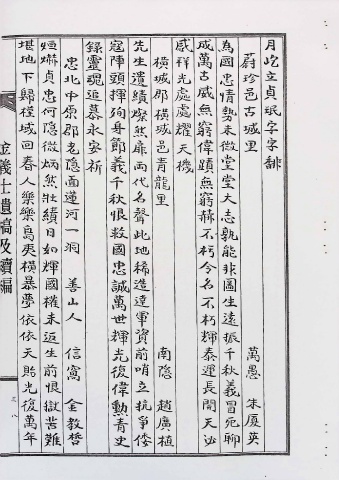 月屹立貞珉字字銂
蔚珍邑古城里　萬愚　朱厦英
為國忠情勢未微堂堂大志孰能非圖生遠振千秋義冒死聊
成萬古威無窮偉蹟無窮赫不朽令名不朽輝泰運長開天必
感祥光處處耀天機
橫城郡橫城邑青龍里　南隐　趙廣植
先生遺績燦然扉兩代名聲此地稀造達軍資前哨立抗爭倭
寇陣頭揮殉身節義千秋恨救國忠誠萬世輝光復偉勳青史
錄靈魂追慕永安祈
忠北中原郡老隐面蓮河一洞　善山人　信窩　金教哲
烜爀貞忠何隐微炳然壯績日如輝國權未返生前恨獄苦難
堪地下歸槿域回春人樂樂島夷橫暴夢依依天貽光復萬年
義士遺稿及續編